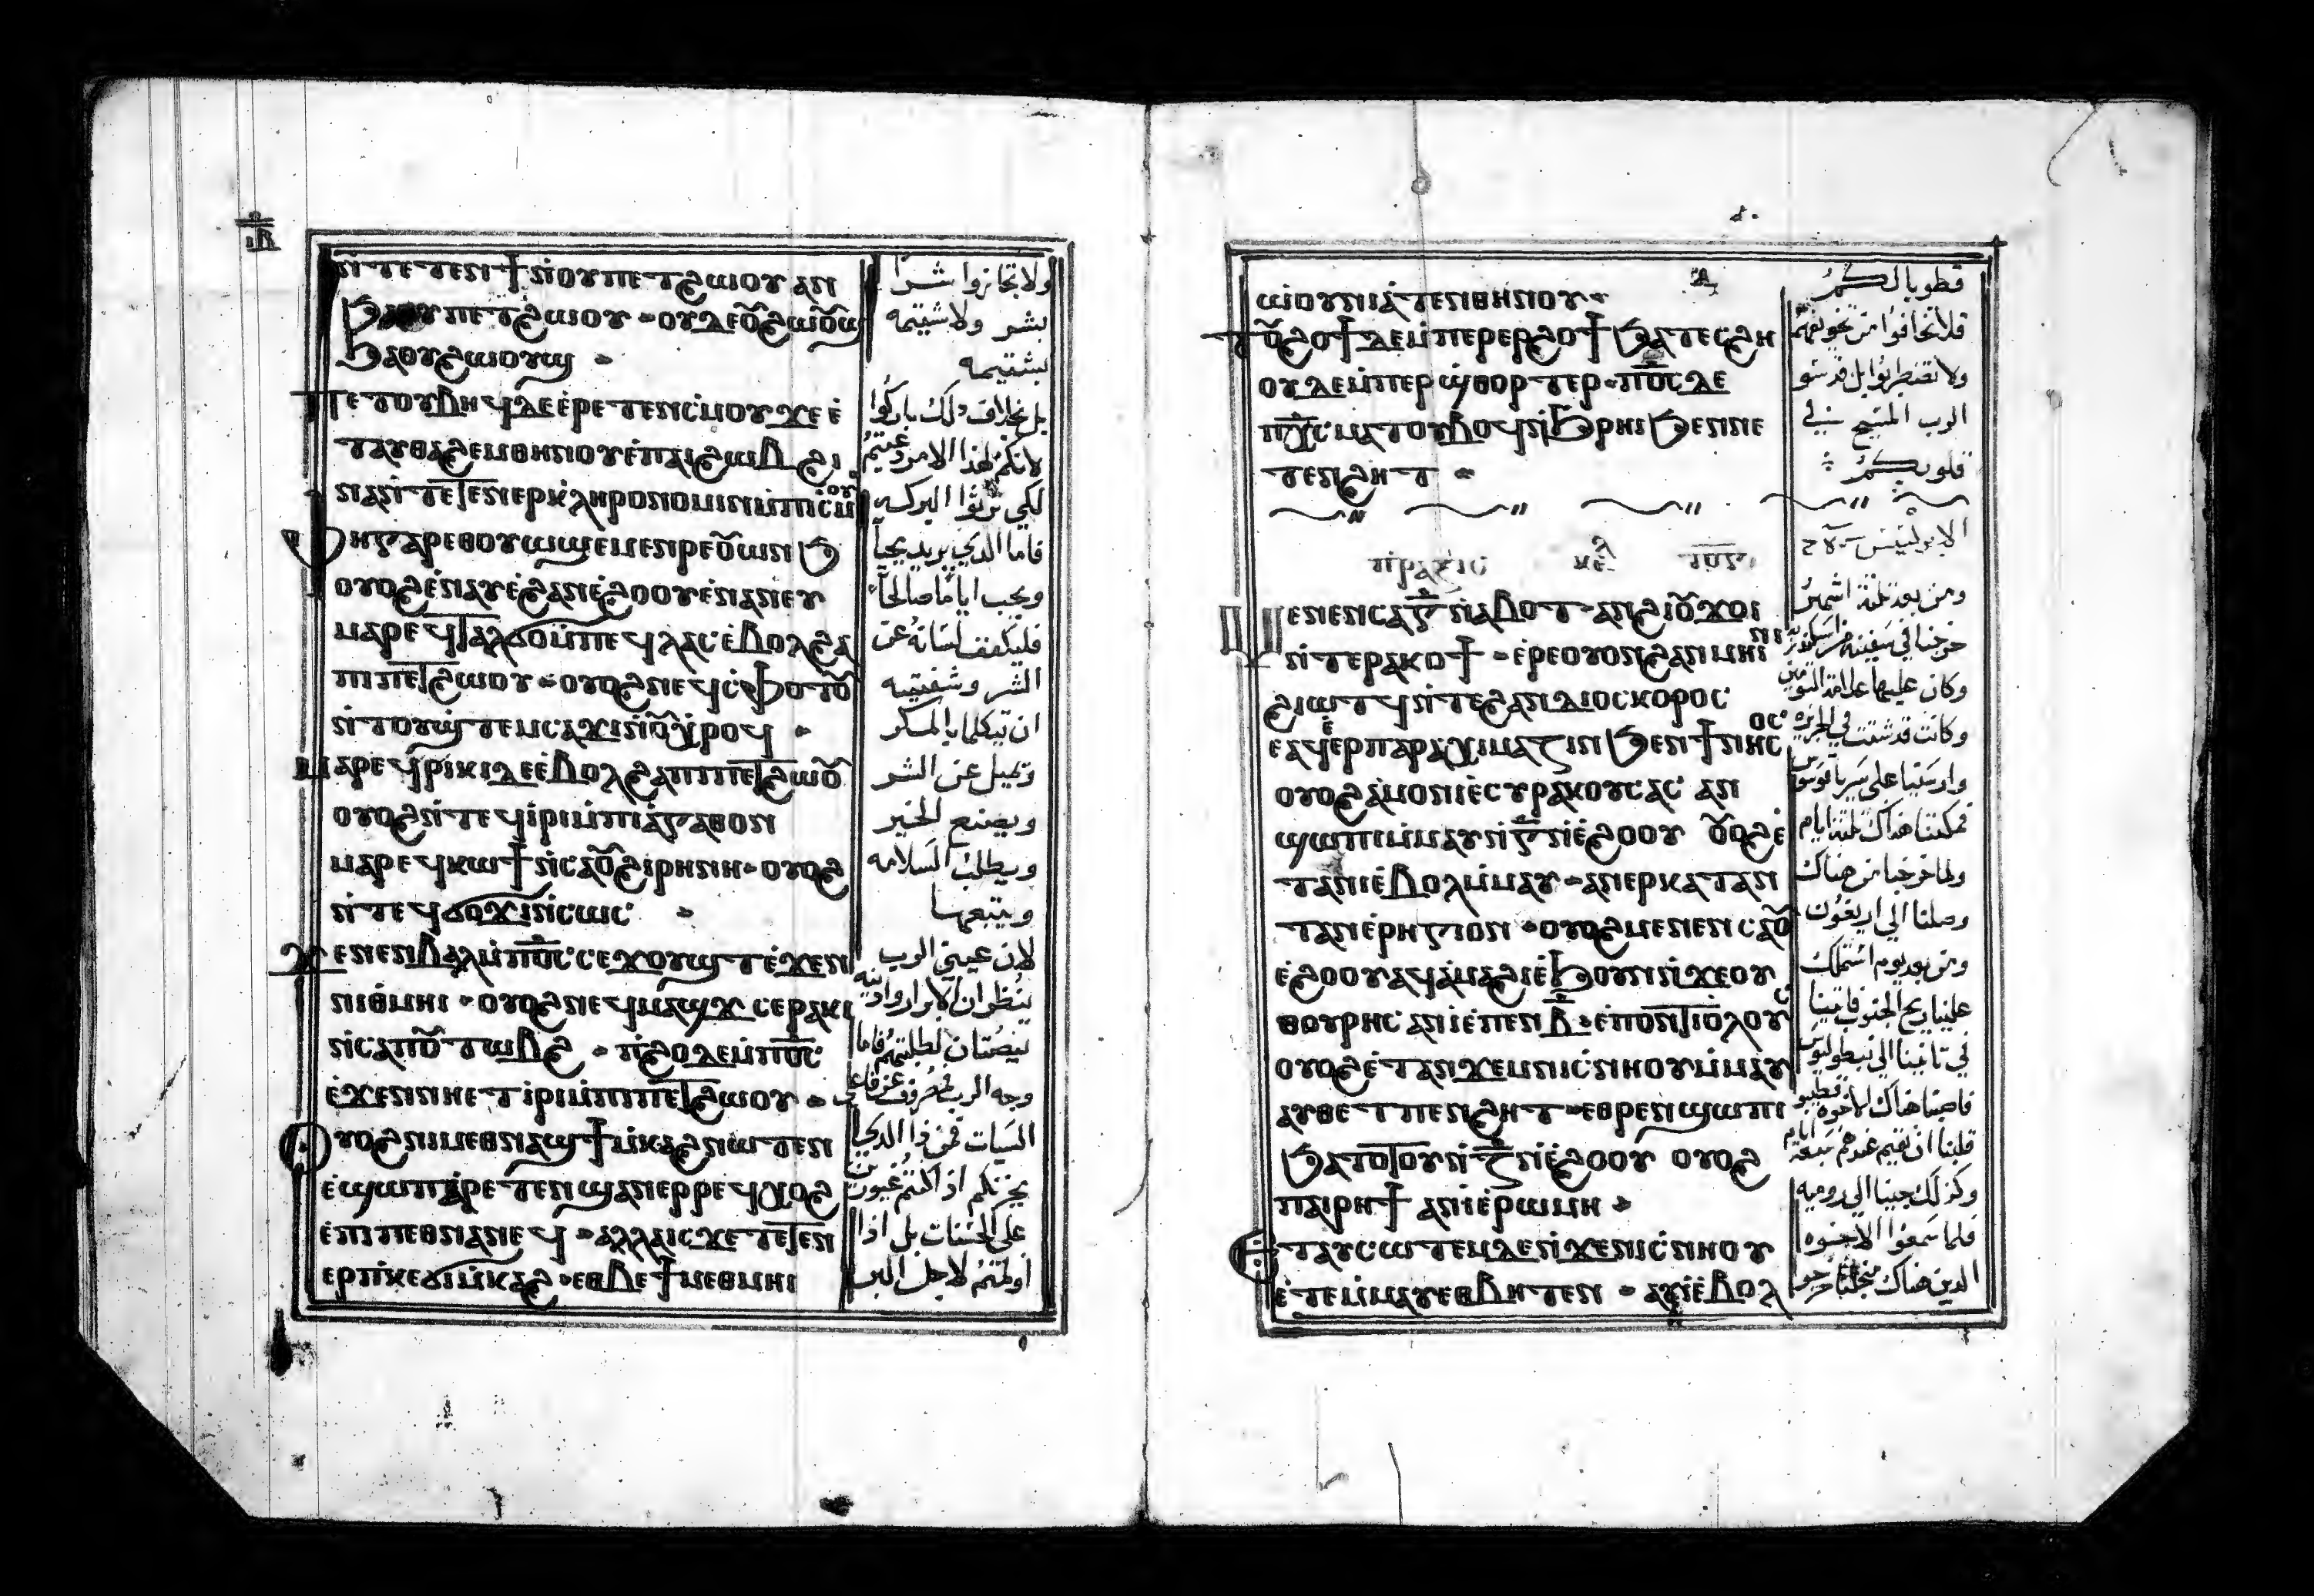 ⲓⲃ
ⲛ̇ⲧⲉⲧⲉⲛϯⲛ̇ⲟⲩⲡⲉⲧϩⲱⲟⲩ ⲁⲛ
ϧⲁⲟⲩⲡⲉⲧϩⲱⲟⲩ ⲟⲩⲇⲉⲟⲩϩⲱⲟⲩϣ
ϧⲁⲟⲩϩⲱⲟⲩϣ
ⲡⲉⲧⲟⲩⲃⲏϥⲇⲉⲉ̇ⲣⲉⲧⲉⲛⲥ̇ⲙⲟⲩ ϫⲉ ⲉ̇
ⲧⲁⲩⲑⲁϩⲉⲙⲑⲏⲛⲟⲩⲉ̇ⲡⲁⲓϩⲱⲃ ϩⲓ
ⲛⲁⲛ̇ⲧⲉⲧⲉⲛⲉⲣⲕ̇ⲗⲏⲣⲟⲛⲟⲙⲓⲛⲙ̇ⲡⲓⲥ̇ⲙⲟⲩ
ⲫⲏⲅⲁⲣⲉⲑⲟⲩⲱϣⲉⲙⲉⲛⲣⲉⲟⲩⲱⲛϧ
ⲟⲩⲟϩⲉ̇ⲛⲁⲩⲉ̇ϩⲁⲛⲉ̇ϩⲟⲟⲩⲉ̇ⲛⲁⲛⲉⲩ
ⲙⲁⲣⲉϥⲧⲁⲗϭⲟⲙ̇ⲡⲉϥⲗⲁⲥⲉ̇ⲃⲟⲗϩⲁ
ⲡⲓⲡⲉⲧϩⲱⲟⲩ ⲟⲩⲟϩⲛⲉϥⲥ̇ⲫⲟⲧⲟⲩ
ⲛ̇ⲧⲟⲩϣ̇ⲧⲉⲙⲥⲁϫⲓⲛ̇ⲟⲩⲭ̇ⲣⲟϥ
ⲙⲁⲣⲉϥⲣⲓⲕⲓⲇⲉⲉ̇ⲃⲟⲗϩⲁⲡⲓⲡⲉⲧϩⲱⲟⲩ
ⲟⲩⲟϩⲛ̇ⲧⲉϥⲓ̇ⲣⲓⲙ̇ⲡⲓⲁ̇ⲅⲁⲑⲟⲛ
ⲙⲁⲣⲉϥⲕⲱϯⲛ̇ⲥⲁⲟⲩϩⲓⲣⲏⲛⲏ ⲟⲩⲟϩ
ⲛ̇ⲧⲉϥϭⲟϫⲓⲛ̇ⲥⲱⲥ
ϫⲉⲛⲉⲛⲃⲁⲗⲙ̇ⲡⲟ̅ⲥ̅ ⲥⲉϫⲟⲩϣⲧⲉ̇ϫⲉⲛ
ⲛⲓⲑ̇ⲙⲏⲓ ⲟⲩⲟϩⲛⲉϥⲙⲁϣϫ ⲥⲉⲣⲁⲕⲓ
ⲛ̇ⲥⲁⲡⲟⲩⲧⲱⲃϩ ⲡ̇ϩⲟⲇⲉⲙ̇ⲡⲟ̅ⲥ̅
ⲉ̇ϫⲉⲛⲛⲏⲉⲧⲓ̇ⲣⲓⲙ̇ⲡⲓⲡⲉⲧϩⲱⲟⲩ
ⲟⲩⲟϩⲛⲓⲙⲉⲑⲛⲁϣϯⲙ̇ⲕⲁϩⲛⲱⲧⲉⲛ
ⲉ̇ϣⲱⲡⲁ̇ⲣⲉⲧⲉⲛϣⲁⲛⲉⲣⲣⲉϥⲭⲟϩ
ⲉ̇ⲡⲓⲡⲉⲑⲛⲁⲛⲉϥ ⲁⲗⲗⲁⲓⲥϫⲉⲧⲉⲧⲉⲛ
ⲉⲣⲡ̇ⲕⲉϭⲓⲙ̇ⲕⲁϩ ⲉⲑⲃⲉϯⲙⲉⲑⲙⲏⲓ
ولا تجازوا شرًا
بشر ولا شتيمه
بشتيمه
بل بخلاف ذلك باركوا
لانكم لهذا الامر دعيتم
لكي ترثوا البركه
فاما الذي يريد يحيا
ويحب اياما صالحا
فليكفف لسانه عن
الشر وشفتيه
ان تتكلما بالمكر
وتميل عن الشر
ويصنع الخير
ويطلب السلامه
ويتبعها
لان عيني الرب
تنظران الابرار واذنيه
تنصتان لطلبتهم فاما
وجه الرب مصروف عن فاعلي
السيات فمن ذا الذي
يحزنكم اذا كنتم غيورين
على الحسنات بل اذا
اولمتم لاجل البر
ⲱ̇ⲟⲩⲛⲓⲁ̇ⲧⲉⲛⲑⲏⲛⲟⲩ
ⲧⲟⲩϩⲟϯⲇⲉⲙ̇ⲡⲉⲣⲉⲣϩⲟϯϧⲁⲧⲉⲥϩⲏ
ⲟⲩⲇⲉⲙ̇ⲡⲉⲣϣ̇ⲑⲟⲣⲧⲉⲣ ⲡⲟ̅ⲥ̅ ⲇⲉ
ⲡⲭ̅ⲥ̅ ⲙⲁⲧⲟⲩⲃⲟϥⲛ̇ϧⲣⲏⲓϧⲉⲛⲛⲉ
ⲧⲉⲛϩⲏⲧ
ⲡⲣⲁⲝⲓⲥ ⲕⲉⲗ ⲧⲟⲩ
ⲙⲉⲛⲉⲛⲥⲁⲅ̅ⲛ̇ⲁⲃⲟⲧ ⲁⲛϩⲓⲟⲩϫⲟⲓ
ⲛ̇ⲧⲉⲣⲁⲕⲟϯ ⲉ̇ⲣⲉⲟⲩⲟⲛϩⲁⲛⲙⲏⲓⲛⲓ
ϩⲓⲱⲧϥⲛ̇ⲧⲉϩⲁⲛⲇⲓⲟⲥⲕⲟⲣⲟⲥ
ⲉⲁϥⲉ̇ⲣⲡⲁⲣⲁⲭⲓⲙⲁⲍⲓⲛϧⲉⲛϯⲛⲏⲥⲟⲥ
ⲟⲩⲟϩⲁ̇ⲙⲟⲛⲓⲉ̇ⲥⲩⲣⲁⲕⲟⲩⲥⲁⲥ ⲁⲛ
ϣⲱⲡⲓⲙ̇ⲙⲁⲩⲛ̇ⲅ̅ⲛ̇ⲉ̇ϩⲟⲟⲩ ⲟⲩⲟϩⲉ̇
ⲧⲁⲛⲓⲉ̇ⲃⲟⲗⲙ̇ⲙⲁⲩ ⲁⲛⲉⲣⲕⲁⲧⲁⲛ
ⲧⲁⲛⲉ̇ⲣⲏⲅⲓⲟⲛ ⲟⲩⲟϩⲙⲉⲛⲉⲛⲥⲁⲟⲩ
ⲉ̇ϩⲟⲟⲩⲁϥⲁ̇ⲙⲁϩⲓⲉ̇ϧⲟⲩⲛⲛ̇ϫⲉⲟⲩ
ⲑⲟⲩⲣⲏⲥ ⲁⲛⲓ̇ⲉ̇ⲡⲉⲛⲃ̅ ⲉ̇ⲡⲟⲛⲧⲓⲟ̇ⲗⲟⲩⲥ
ⲟⲩⲟϩⲉ̇ⲧⲁⲛϫⲉⲙⲛⲓⲥ̇ⲛⲏⲟⲩⲙ̇ⲙⲁⲩ
ⲁⲩⲑⲉⲧⲡⲉⲛϩⲏⲧ ⲉⲑⲣⲉⲛϣⲱⲡⲓ
ϧⲁⲧⲟⲧⲟⲩⲛ̇ⲍ̅ⲛ̇ⲉ̇ϩⲟⲟⲩ ⲟⲩⲟϩ
ⲡⲁⲓⲣⲏϯ ⲁⲛⲓ̇ⲉ̇ⲣⲱⲙⲏ
ⲉ̇ⲧⲁⲩⲥⲱⲧⲉⲙⲇⲉⲛ̇ϫⲉⲛⲓⲥ̇ⲛⲏⲟⲩ
ⲉ̇ⲧⲉⲙ̇ⲙⲁⲩⲉⲑⲃⲏⲧⲉⲛ ⲁⲩⲓ̇ⲉ̇ⲃⲟⲗ
فطوباكم
فلا تخافوا من تخويفهم
ولا تضطربوا بل قدسو
الرب المسيح في
قلوبكم
ومن بعد ثلثة اشهر
خرجنا في سفينه من اسكندريه
وكان عليها علامة التومين
وكانت قد شتت في الجزيره
وارسينا على سيراقوسوس
فمكثنا هناك ثلثة ايام
ولما خرجنا من هناك
وصلنا الي اريغون
ومن بعد يوم استملك
علينا ريح الجنوب فاتينا
في ثانينا الي نبطوليوس
فاصبنا هناك الاخوه فطلبو
قلبنا ان نقيم عندهم سبعة ايام
وكذلك جينا الي روميه
فلما سمعوا الاخوه
الذين هناك من اجلنا خرجو